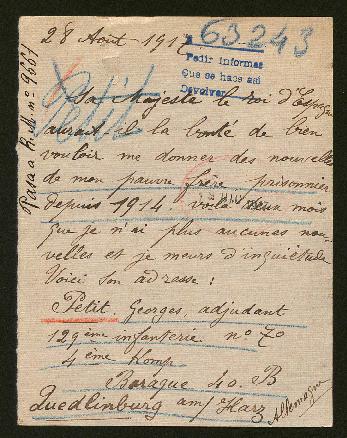 28 Août 1917
63243
Pedir informes
Que se haga así
Devolver
Pasa a R. M. nº 9661
Petit
Sa Majesté le roi d'Espagne
aurait-il la bonté de bien
vouloir me donner des nouvelles
de mon pauvre frère prisonnier
depuis 1914 voilà deux mois
que je n'ai plus aucunes nou-
velles et je meurs d'inquiétude
Voici son adresse :
Petit Georges, adjudant
129ème infanterie nº 70
4ème Komp
Baraque 40. B
Quedlinburg am/ Harz
Allemagne